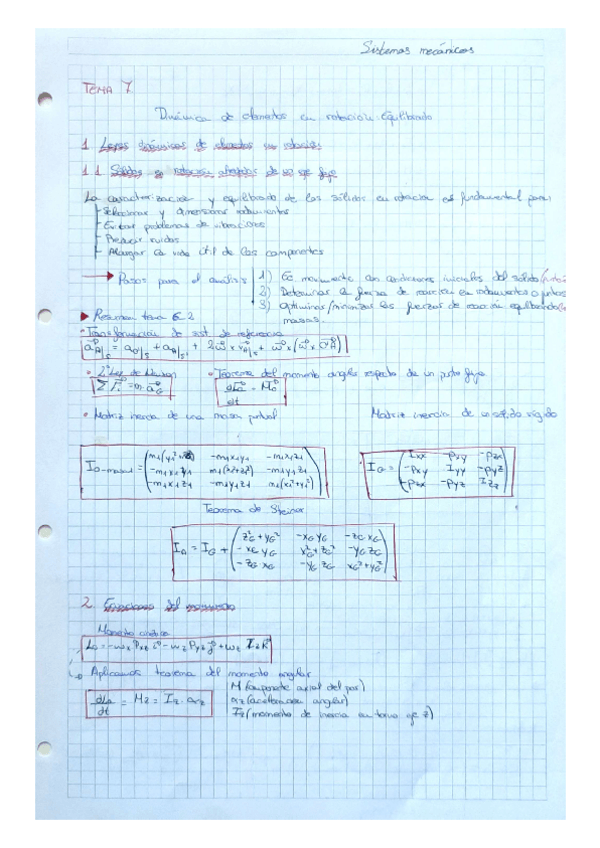 Sistemas mecánicos
TEMA 7
Dinámica de elementos en rotación. Equilibrado
1 Leyes dinámicas de elementos en rotación
1.1 Sólidos en rotación alrededor de un eje fijo
La caracterización y equilibrado de los sólidos en rotación es fundamental para:
- Seleccionar y dimensionar rodamientos
- Evitar problemas de vibraciones
- Reducir ruidos
- Alargar la vida útil de los componentes
→ Pasos para el análisis 1) Ec movimiento con condiciones iniciales del sólido
2) Determinar la fuerza de reacción en rodamientos o
3) Optimizar/minimizar las fuerzas de reacción equilibrando
masas.
▶ Resumen tema 6.2
• Transformación de sist. de referencia
• 2ª Ley de Newton • Teorema del momento angular respecto de un punto fijo
ΣF = m·a_G dL_O/dt = M_O
• Matriz inercia de una masa puntual Matriz inercia de un sólido rígido
I_O-masa1 = (m1(y1²+z1²) -m1x1y1 -m1x1z1 I_O = (Ixx -Pxy -Pzx
-m1x1y1 m1(x1²+z1²) -m1y1z1 -Pxy Iyy -Pyz
-m1x1z1 -m1y1z1 m1(x1²+y1²)) -Pzx -Pyz Izz)
Teorema de Steiner
I_A = I_G + (z_G²+y_G² -x_G y_G -z_G x_G
-x_G y_G x_G²+z_G² -y_G z_G
-z_G x_G -y_G z_G x_G²+y_G²)
2. Ecuaciones del movimiento
Momento cinético
L_O = -ω_z P_xz i - ω_z P_yz j + ω_z I_z k
↳ Aplicamos teorema del momento angular
dL_O/dt = M_z = I_z · α_z M (componente axial del par)
α_z (aceleración angular)
I_z (momento de inercia en torno eje z)